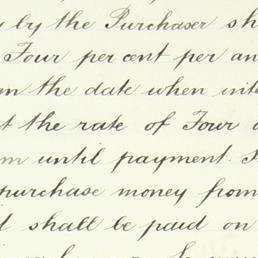 by the Purchaser sh
Four per cent per an
the date when inte
the rate of Four
until payment.
purchase money from
shall be paid on